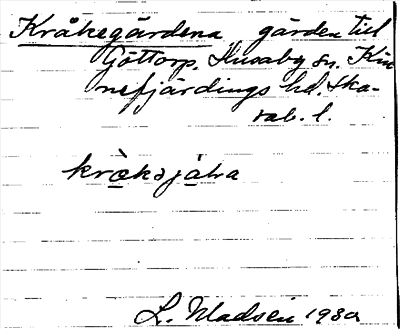 Kråkegärdena gärden till
Göttorp. Husaby sn. Kin
nefjärdings hd. Ska-
rab. l.
kràkəjáɫra
L. Madsén 1930